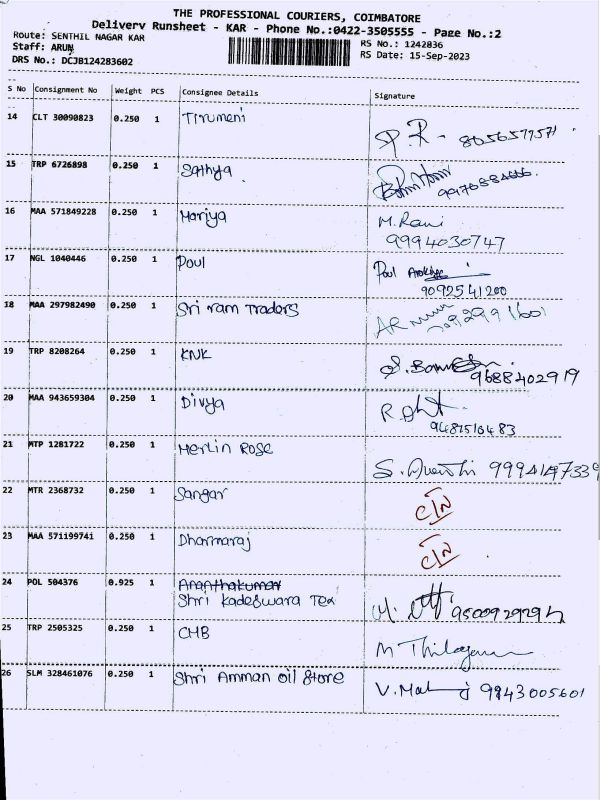 THE PROFESSIONAL COURIERS, COIMBATORE
Delivery Runsheet - KAR - Phone No.:0422-3505555 - Page No.:2
Route: SENTHIL NAGAR KAR
Staff: ARUN
DRS No.: DCJB124283602
RS No.: 1242836
RS Date: 15-Sep-2023
S No Consignment No Weight PCS Consignee Details Signature
14 CLT 30090823 0.250 1 Tirumeni
15 TRP 6726898 0.250 1 Sathya
16 MAA 571849228 0.250 1 Mariya M. Rani
9994030747
17 NGL 1040446 0.250 1 Poul Poul
9092541200
18 MAA 297982490 0.250 1 Sri ram Traders
19 TRP 8208264 0.250 1 KNK
9688402919
20 MAA 943659304 0.250 1 Divya
9487516483
21 MTP 1281722 0.250 1 Merlin Rose
22 MTR 2368732 0.250 1 Sangar
23 MAA 571199741 0.250 1 Dharmaraj
24 POL 504376 0.925 1 Ananthakumar
Shri Kadeswara Tex
25 TRP 2505325 0.250 1 CMB
26 SLM 328461076 0.250 1 Shri Amman oil Store 9843005601